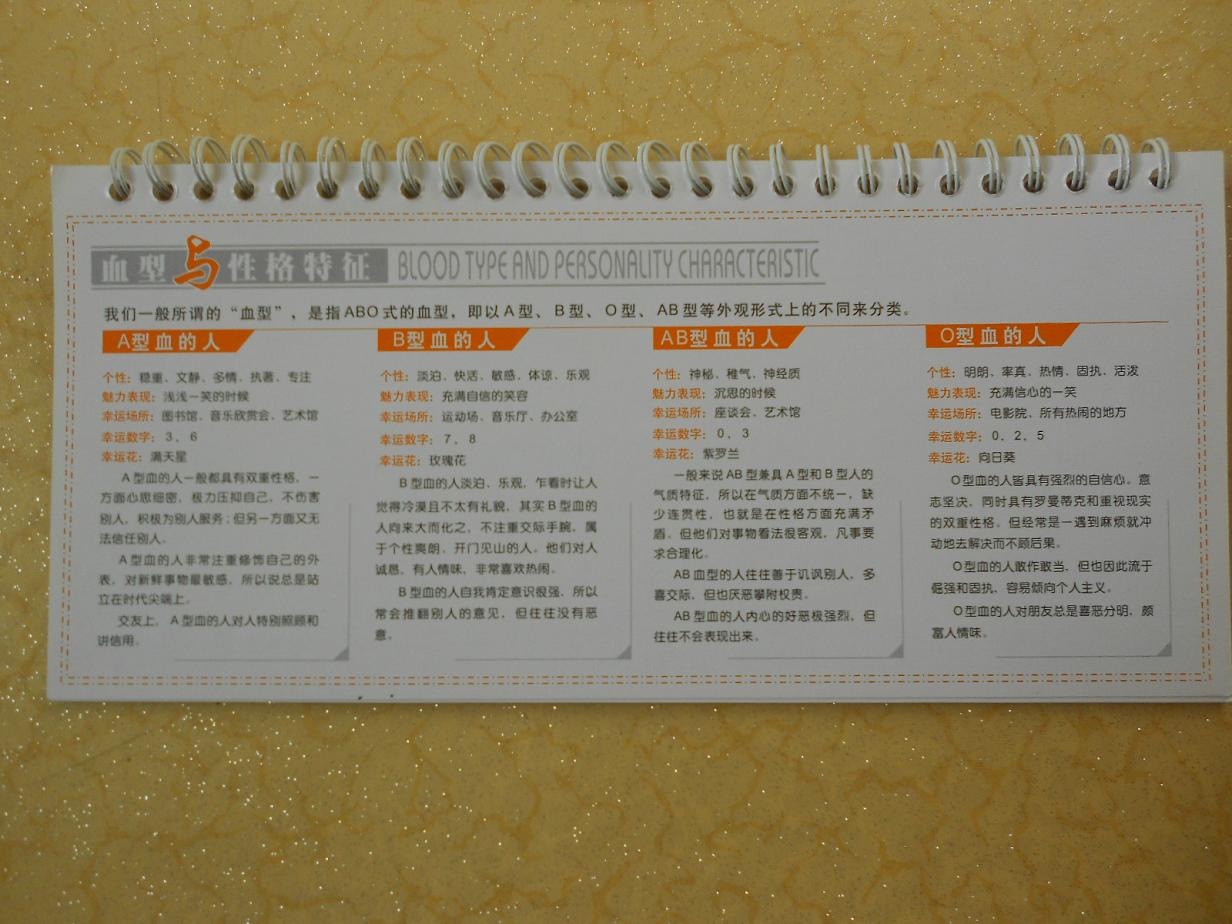 血型与性格特征 BLOOD TYPE AND PERSONALITY CHARACTERISTIC
我们一般所谓的“血型”，是指ABO式的血型，即以A型、B型、O型、AB型等外观形式上的不同来分类。
A型血的人
个性：稳重、文静、多情、执著、专注
魅力表现：浅浅一笑的时候
幸运场所：图书馆、音乐欣赏会、艺术馆
幸运数字：3、6
幸运花：满天星
A型血的人一般都具有双重性格，一
方面心思细密，极力压抑自己，不伤害
别人，积极为别人服务；但另一方面又无
法信任别人。
A型血的人非常注重修饰自己的外
表，对新鲜事物最敏感，所以说总是站
立在时代尖端上。
交友上，A型血的人对人特别照顾和
讲信用。
B型血的人
个性：淡泊、快活、敏感、体谅、乐观
魅力表现：充满自信的笑容
幸运场所：运动场、音乐厅、办公室
幸运数字：7、8
幸运花：玫瑰花
B型血的人淡泊、乐观，乍看时让人
觉得冷漠且不太有礼貌，其实B型血的
人向来大而化之，不注重交际手腕，属
于个性爽朗，开门见山的人。他们对人
诚恳，有人情味，非常喜欢热闹。
B型血的人自我肯定意识很强，所以
常会推翻别人的意见，但往往没有恶
意。
AB型血的人
个性：神秘、稚气、神经质
魅力表现：沉思的时候
幸运场所：座谈会、艺术馆
幸运数字：0、3
幸运花：紫罗兰
一般来说AB型兼具A型和B型人的
气质特征，所以在气质方面不统一，缺
少连贯性，也就是在性格方面充满矛
盾。但他们对事物看法很客观，凡事要
求合理化。
AB血型的人往往善于讥讽别人，多
喜交际，但也厌恶攀附权贵。
AB型血的人内心的好恶极强烈，但
往往不会表现出来。
O型血的人
个性：明朗、率真、热情、固执、活泼
魅力表现：充满信心的一笑
幸运场所：电影院、所有热闹的地方
幸运数字：0、2、5
幸运花：向日葵
O型血的人皆具有强烈的自信心，意
志坚决，同时具有罗曼蒂克和重视现实
的双重性格，但经常是一遇到麻烦就冲
动地去解决而不顾后果。
O型血的人敢作敢当，但也因此流于
倔强和固执，容易倾向个人主义。
O型血的人对朋友总是喜恶分明，颇
富人情味。